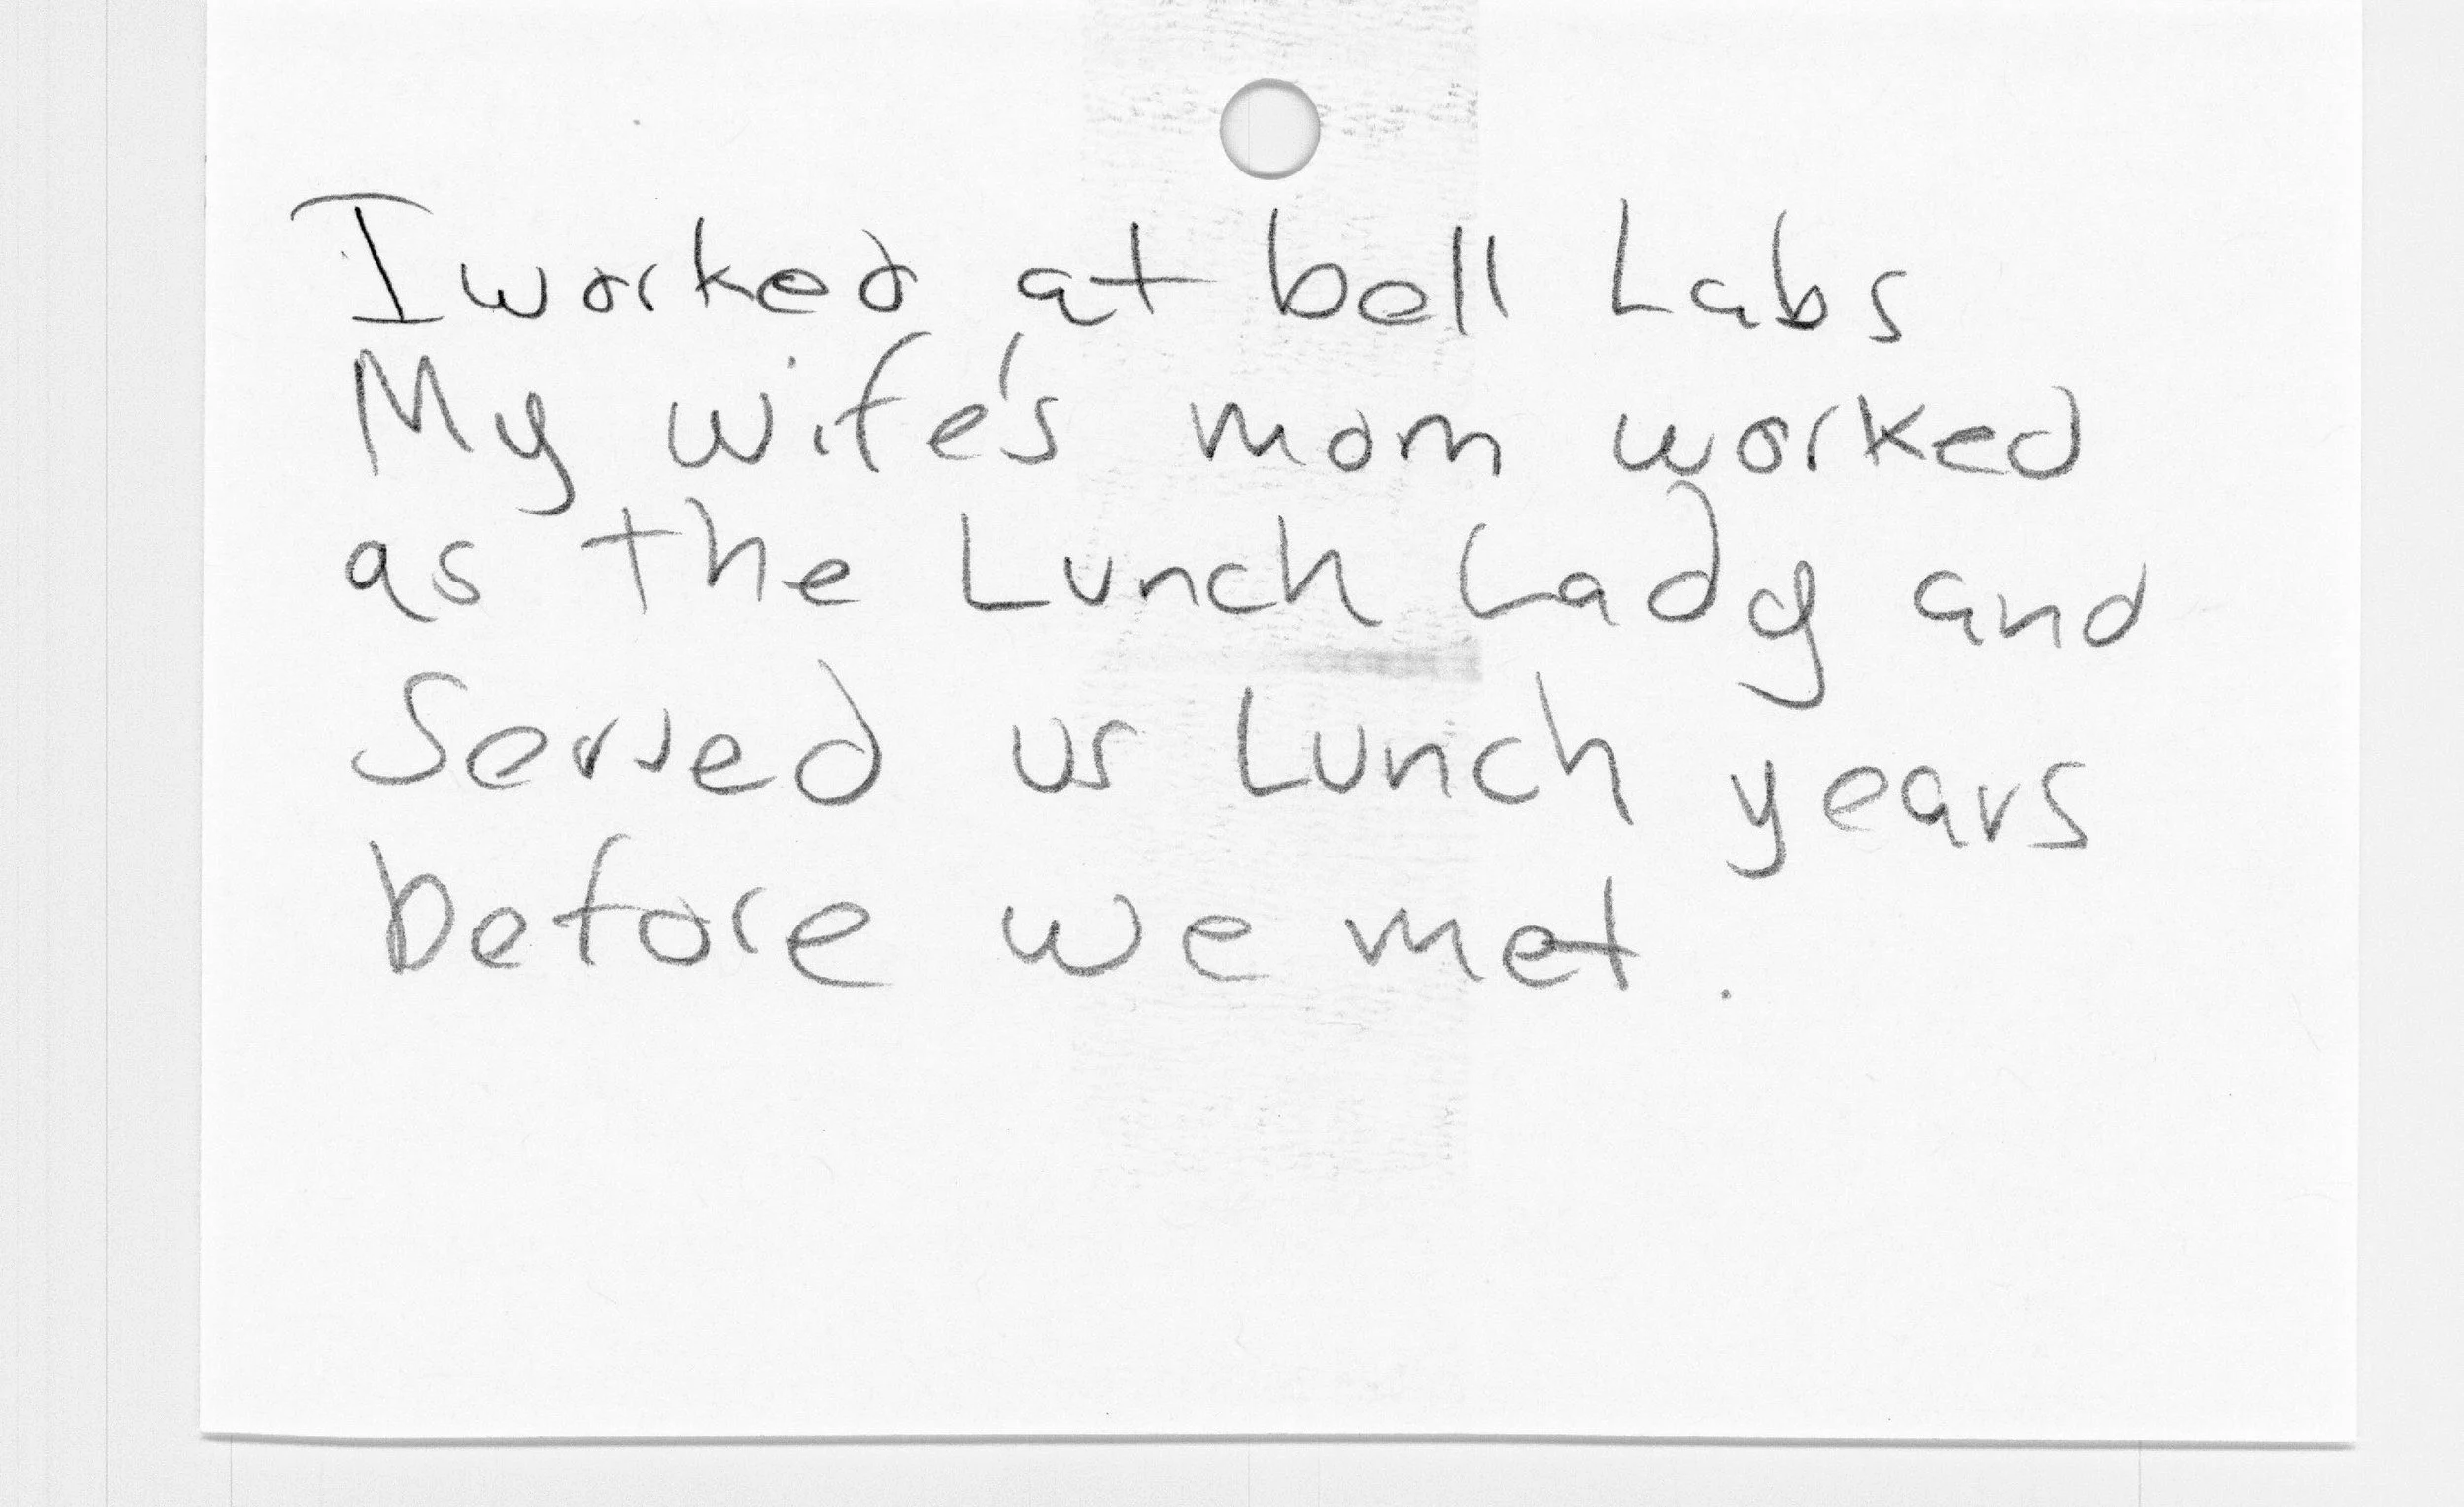 I worked at bell Labs
My wife's mom worked
as the Lunch Lady and
Served us Lunch years
before we met.